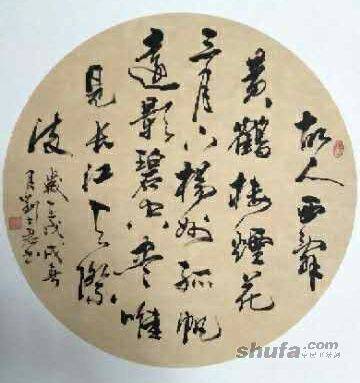 故人西辭
黄鶴樓煙花
三月下揚州孤帆
遠影碧空盡唯
見長江天際
流
戊戌春
月
shufa.com